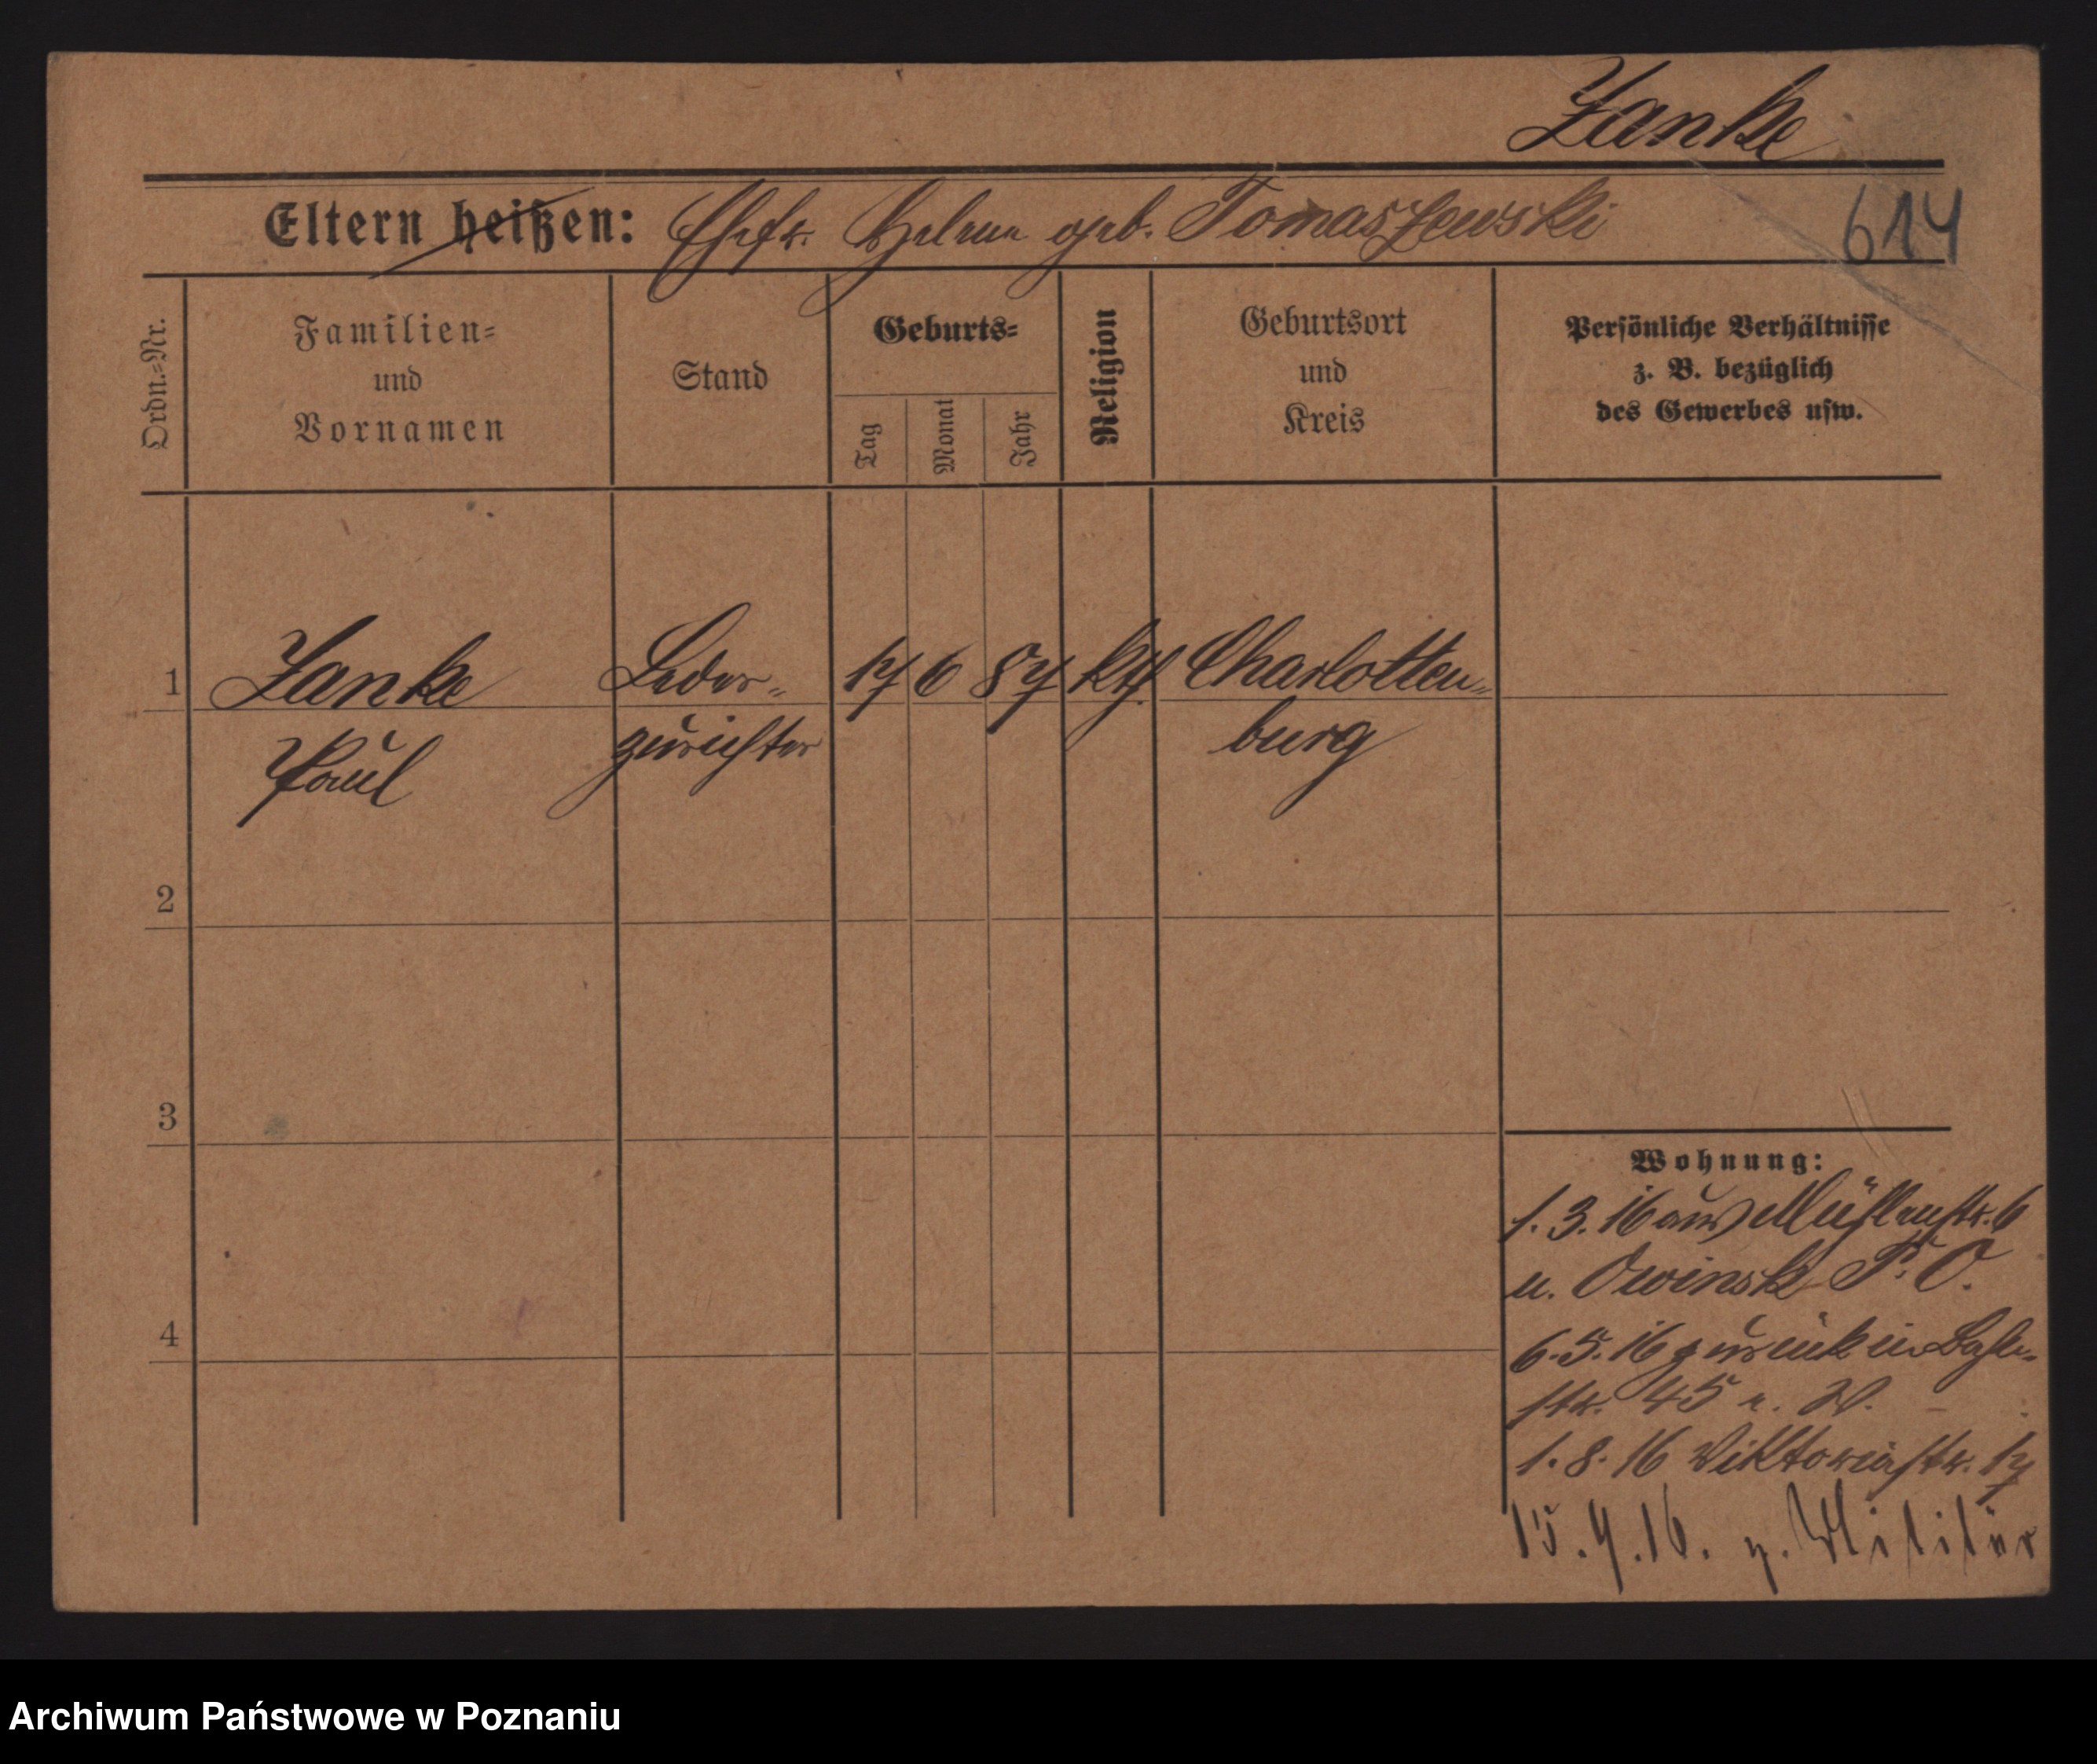 Zanke
Eltern heißen: Ehefr. Helene geb. Tomaszewski
614
Ordn.-Nr.
Familien-
und
Vornamen
Stand
Geburts-
Tag
Monat
Jahr
Religion
Geburtsort
und
Kreis
Persönliche Verhältnisse
z. B. bezüglich
des Gewerbes usw.
1 Zanke Leder- 17 6 87 kth. Charlotten-
Paul zurichter burg
2
3
4
Wohnung:
1. 3. 16 aus Mühlenstr. 6
n. Owinsk P. O.
6. 5. 16 zurück in
str. 45
1. 8. 16 Viktoriastr. 17
15. 9. 16. z. Militär
Archiwum Państwowe w Poznaniu